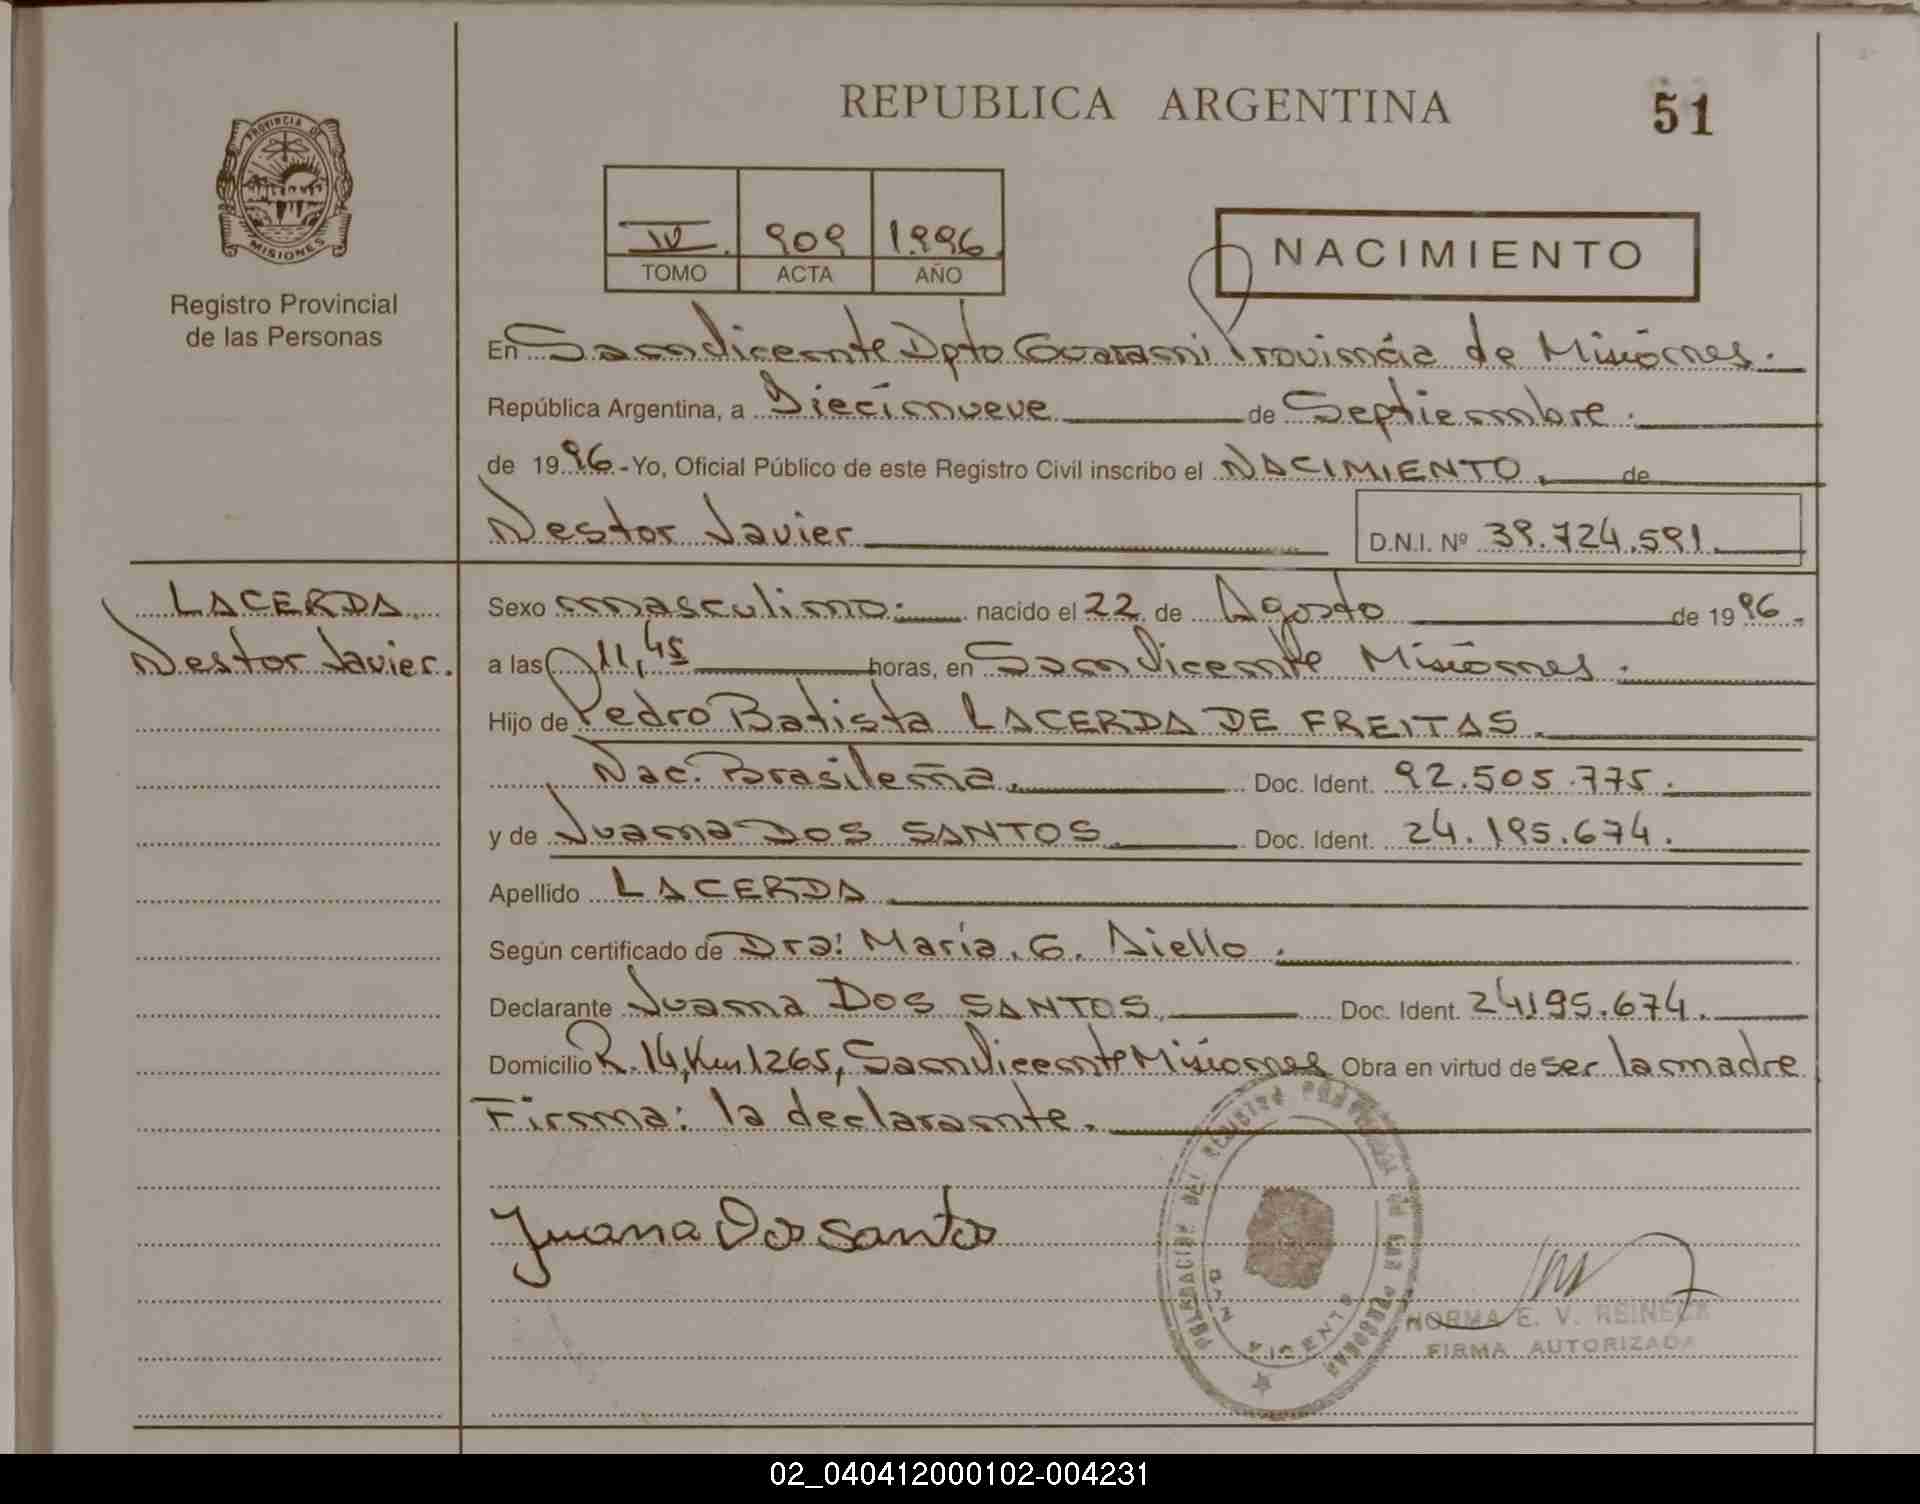 REPUBLICA ARGENTINA
51
PROVINCIA DE
MISIONES
Registro Provincial
de las Personas
IV. 909 1.996.
TOMO ACTA AÑO
NACIMIENTO
En San Vicente Dpto Guarani Provincia de Misiones.
República Argentina, a Diecinueve de Septiembre.
de 1996.-Yo, Oficial Público de este Registro Civil inscribo el NACIMIENTO. de
Nestor Javier
D.N.I. Nº 39.724.591.
LACERDA
Nestor Javier.
Sexo masculino. nacido el 22 de Agosto de 1996.
a las 11,45 horas, en San Vicente Misiones.
Hijo de Pedro Batista LACERDA DE FREITAS.
Nac. Brasileña. Doc. Ident. 92.505.775.
y de Juana DOS SANTOS. Doc. Ident. 24.195.674.
Apellido LACERDA
Según certificado de Dra: María. G. Aiello.
Declarante Juana DOS SANTOS. Doc. Ident. 24195.674.
Domicilio R. 14, Km 1265, San Vicente Misiones Obra en virtud de ser la madre
Firma: la declarante.
Juana Dos Santos
SAN VICENTE
NORMA E. V. REINECK
FIRMA AUTORIZADA
02_040412000102-004231